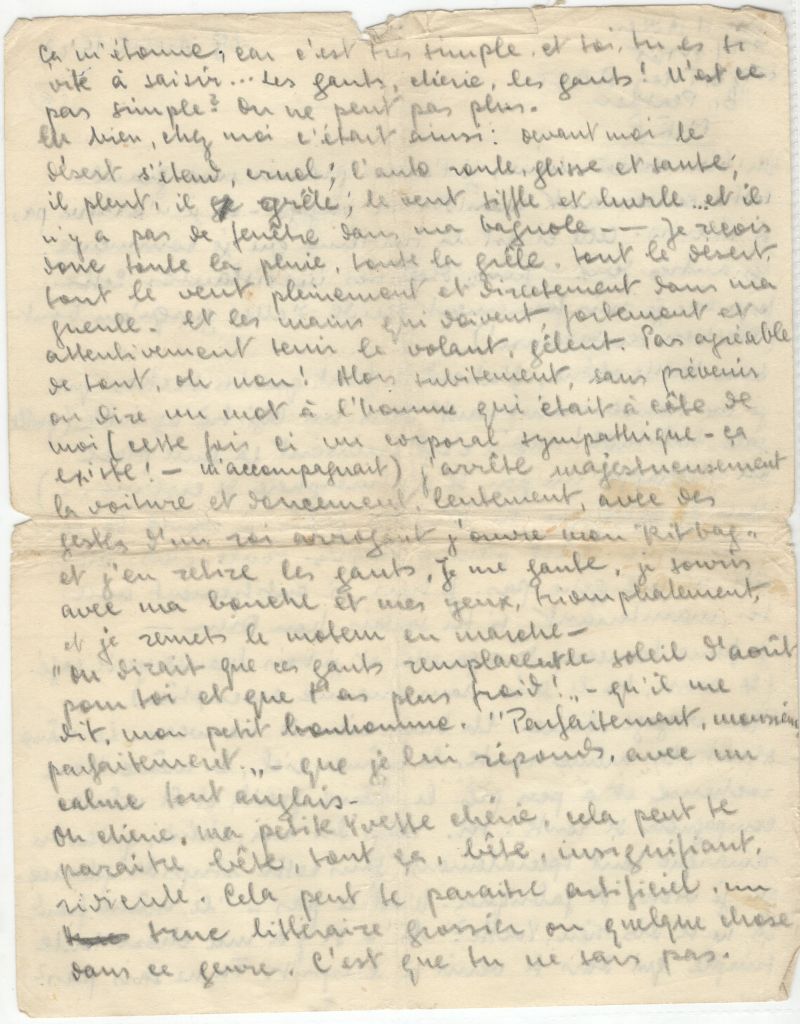 Ça m'étonne, car c'est très simple, et toi, tu es si
vite à saisir... Les gants, chérie, les gants! N'est ce
pas simple? On ne peut pas plus.
Eh bien, chez moi c'était ainsi: devant moi le
désert s'étend, cruel; l'auto roule, glisse et saute;
il pleut, il grêle; le vent siffle et hurle... et il
n'y a pas de fenêtre dans ma bagnole -- Je reçois
donc toute la pluie, toute la grêle, tout le désert,
tout le vent pleinement et directement dans ma
gueule. Et les mains qui doivent, fortement et
attentivement tenir le volant, gêlent. Pas agréable
de tout, oh non! Alors subitement, sans prévenir
ou dire un mot à l'homme qui était à côte de
moi (cette fois ci un corporal sympathique - ça
existe! - m'accompagnait) j'arrête majestueusement
la voiture et doucement, lentement, avec des
gestes d'un roi arrogant j'ouvre mon "Kitbag"
et j'en retire les gants, Je me gante, je souris
avec ma bouche et mes yeux, triomphalement,
et je remets le moteur en marche -
"On dirait que ces gants remplacent le soleil d'août
pour toi et que t'as plus froid!" - qu'il me
dit, mon petit bonhomme. "Parfaitement, monsieur
parfaitement." - que je lui réponds, avec un
calme tout anglais -
Oh chérie, ma petite Yvette chérie, cela peut te
paraître bête, tout ça, bête, insignifiant,
ridicule. Cela peut te paraitre artificiel, un
truc littéraire grossier ou quelque chose
dans ce genre. C'est que tu ne sais pas.